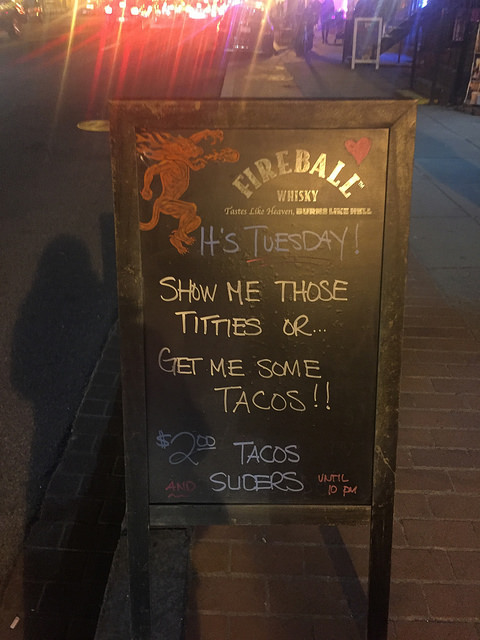 FIREBALL™
WHISKY
Tastes Like Heaven, BURNS LIKE HELL
It's TUESDAY!
SHOW ME THOSE
TITTIES OR...
GET ME SOME
TACOS!!
$2.00 TACOS
AND SLIDERS UNTIL
10 PM